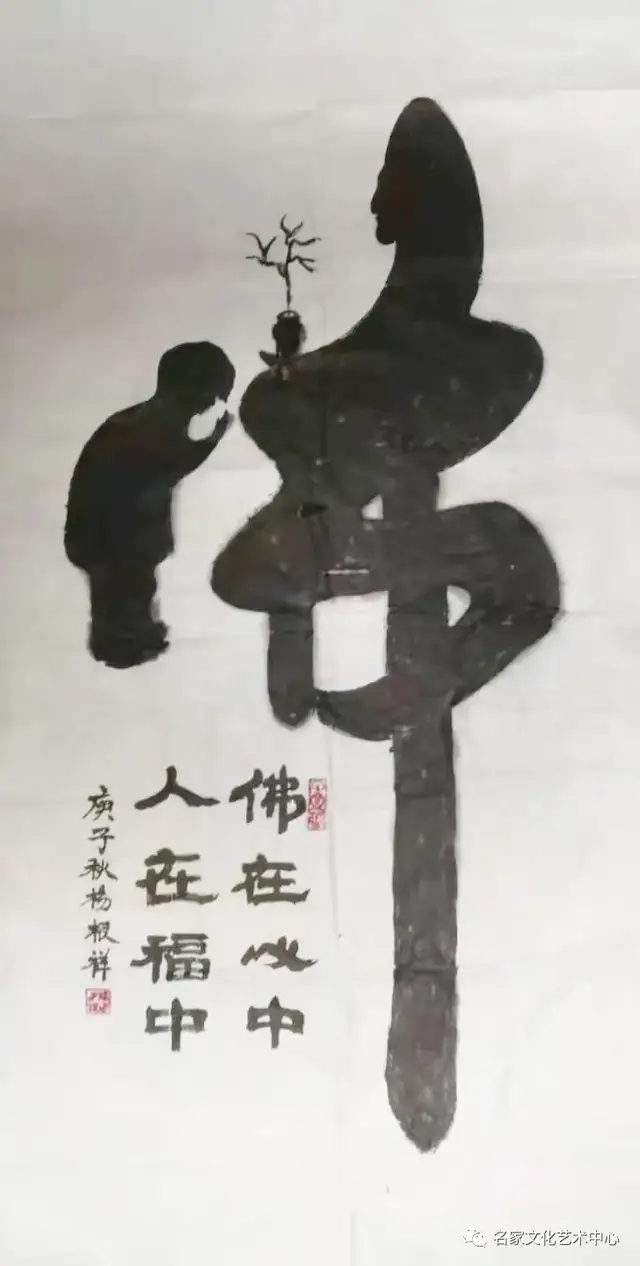 佛
佛在心中
人在福中
庚子秋杨根祥
名家文化艺术中心